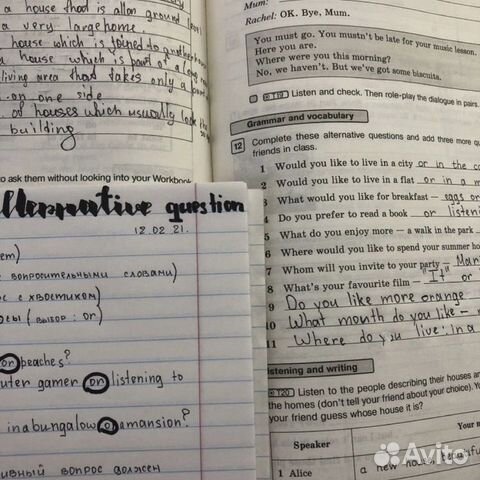 a house that is all on ground
a very large home.
house which is joined to another
a house which is part of a long
living area that takes only a
on one side
of houses which usually look the
building
to ask them without looking into your Workbook
Alternative question
12.02.21.
вопросительными словами)
с хвостиком)
(выбор: or)
or peaches?
uter gamer or listening to
in a bungalow o a mansion?
ивный вопрос должен
Mum:
Rachel: OK. Bye, Mum.
You must go. You mustn't be late for your music lesson.
Here you are.
Where were you this morning?
No, we haven't. But we've got some biscuits.
T19 Listen and check. Then role-play the dialogue in pairs.
Grammar and vocabulary
12 Complete these alternative questions and add three more qu
friends in class.
1 Would you like to live in a city or in the co
2 Would you like to live in a flat or in a m
3 What would you like for breakfast — eggs or
4 Do you prefer to read a book or listeni
5 What do you enjoy more — a walk in the park
6 Where would you like to spend your summer ho
7 Whom will you invite to your party — Mari
8 What's your favourite film — "It" or
9 Do you like more orange
10 What mouth do you like —
11 Where do you live: in a
istening and writing
T20 Listen to the people describing their houses an
the homes (don't tell your friend about your choice). Yo
your friend guess whose house it is?
Speaker
Your n
1 Alice
a new house, beautiful
Avito